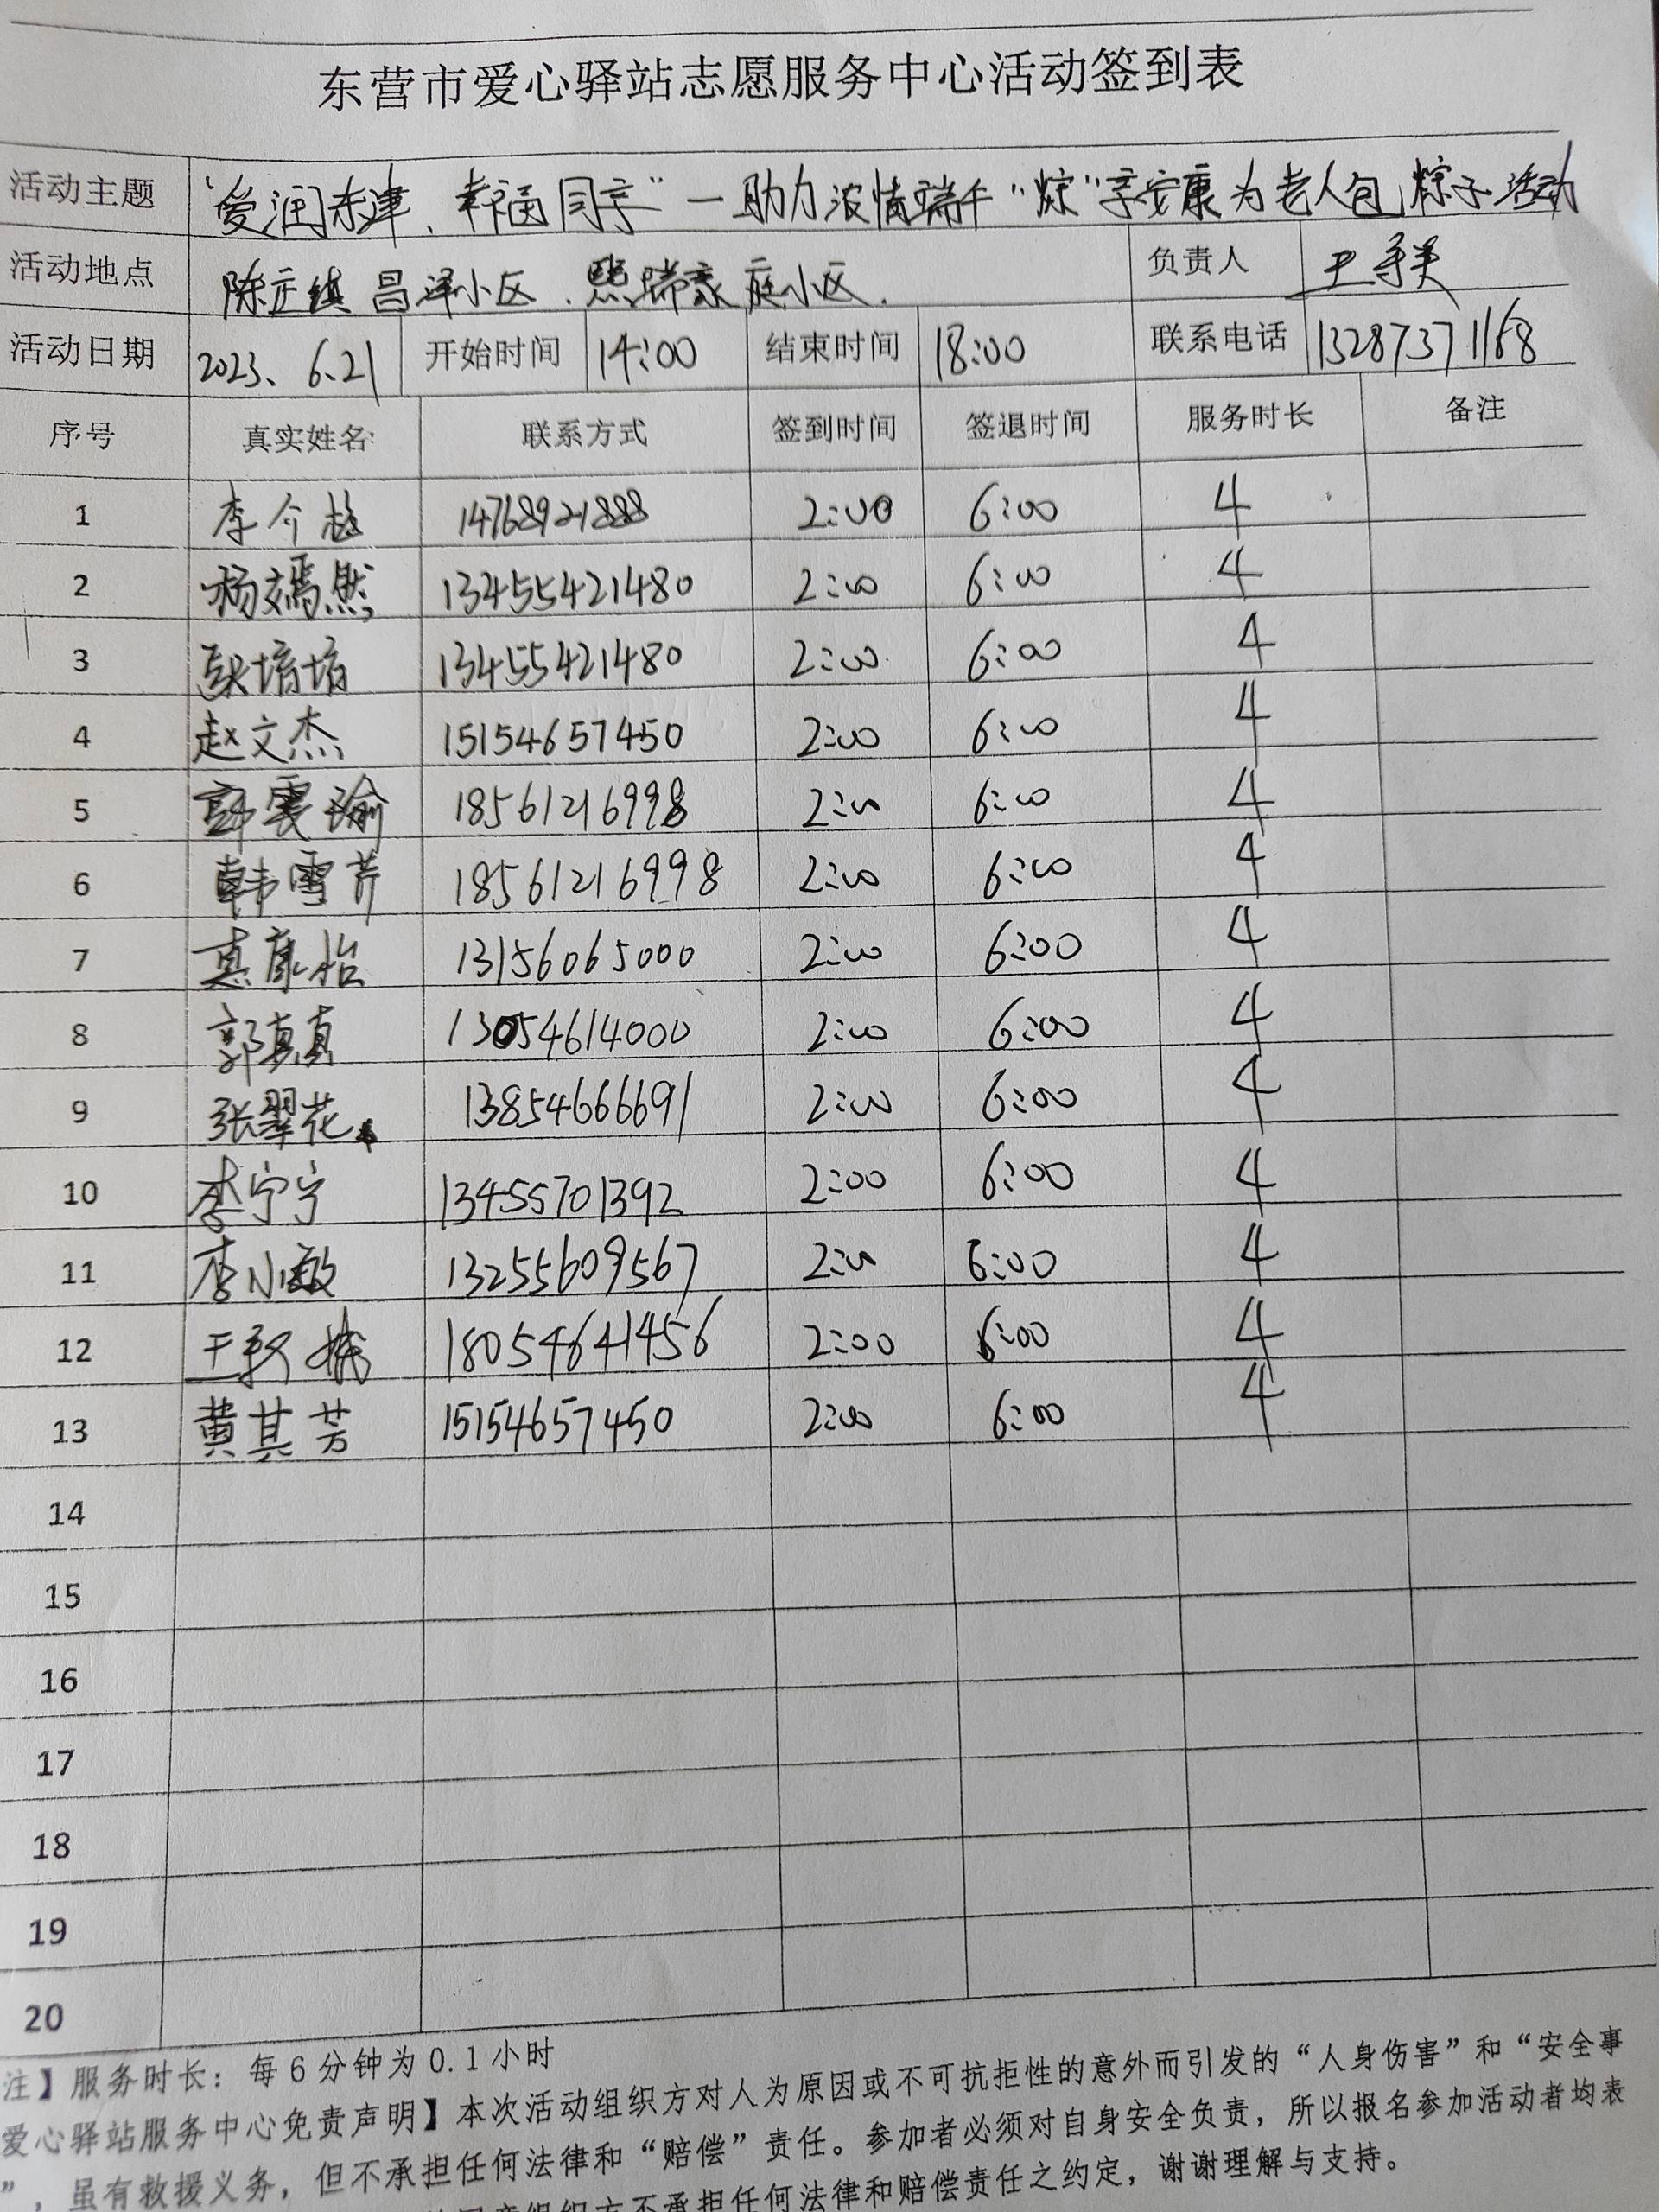 东营市爱心驿站志愿服务中心活动签到表
活动主题 “爱润东津、幸福同享”一助力浓情端午“粽”享安康为老人包粽子活动
活动地点 陈庄镇昌泽小区.熙瑞家庭小区. 负责人 王
活动日期 2023、6.21 开始时间 14:00 结束时间 18:00 联系电话 13287371168
序号 真实姓名 联系方式 签到时间 签退时间 服务时长 备注
1 李介 14768921888 2:00 6:00 4
2 杨嫣然 13455421480 2:00 6:00 4
3 张培培 13455421480 2:00 6:00 4
4 赵文杰 15154657450 2:00 6:00 4
5 瑜 18561216998 2:00 6:00 4
6 韩雪芹 18561216998 2:00 6:00 4
7 真康怡 13156065000 2:00 6:00 4
8 郭真真 13054614000 2:00 6:00 4
9 张翠花 13854666691 2:00 6:00 4
10 李宁宁 13455701392 2:00 6:00 4
11 李小敏 13255609567 2:00 6:00 4
12 王 18054641456 2:00 6:00 4
13 黄其芳 15154657450 2:00 6:00 4
14
15
16
17
18
19
20
注】服务时长：每6分钟为0.1小时
爱心驿站服务中心免责声明】本次活动组织方对人为原因或不可抗拒性的意外而引发的“人身伤害”和“安全事
”，虽有救援义务，但不承担任何法律和“赔偿”责任。参加者必须对自身安全负责，所以报名参加活动者均表
组织方不承担任何法律和赔偿责任之约定，谢谢理解与支持。